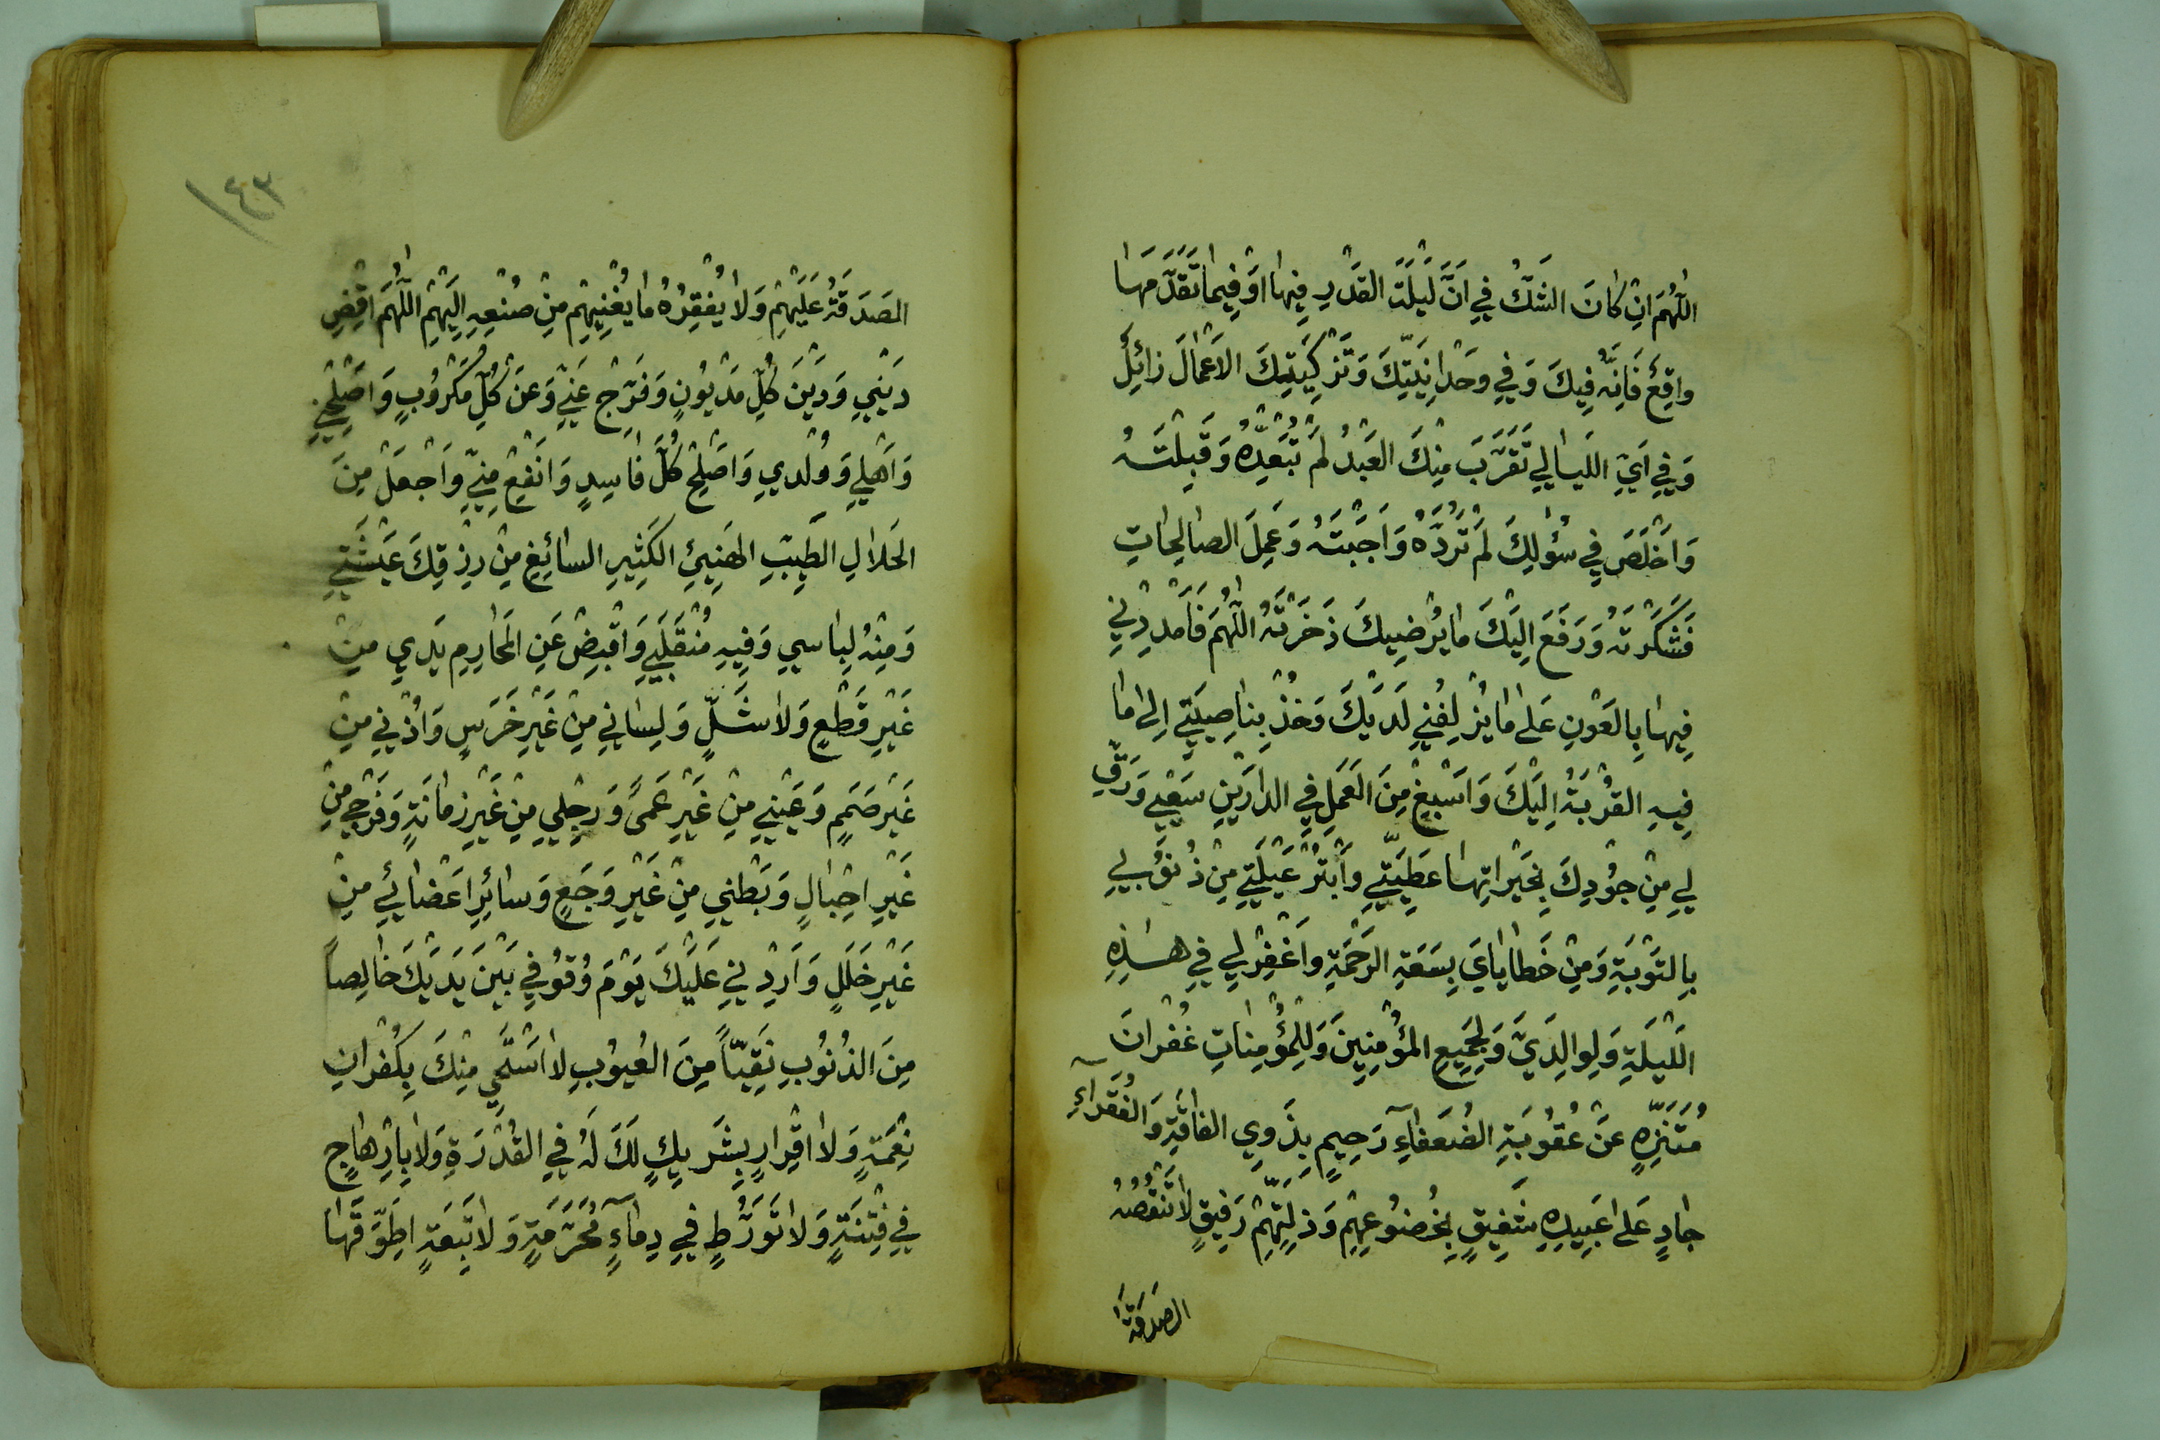 اَللّٰهُمَّ اِنْ كانَ الشَكُّ فِي اَنَّ لَيْلَةَ القَدْرِ فِيها اَوْ فِيما تَقَدَّمَها
واقِعٌ فَاِنَّهُ فِيكَ وَفِي وَحْدانِيَّتِكَ وَتَزْكِيَتِكَ الاَعْمالَ زائِلٌ
وَفِي اَيِّ اللَيالِي تَقَرَّبَ مِنْكَ العَبْدُ لَمْ تُبْعِّدْهُ وَقَبِلْتَهُ
وَاَخْلَصَ فِي سُؤٰلِكَ لَمْ تَرُدَّهُ وَاَجَبْتَهُ وَعَمِلَ الصالِحاتِ
فَشَكَرْتَهُ وَرَفَعَ اِلَيْكَ ما يُرْضِيكَ ذَخَرْتَهُ اَللّٰهُمَّ فَامْدُدْنِي
فِيها بِالعَوْنِ عَلىٰ ما يُزْلِفُنِي لَدَيْكَ وَخُذْ بِناصِيَتِي اِلىٰ ما
فِيهِ القُرْبَةُ اِلَيْكَ وَاَسْبِغْ مِنَ العَمَلِ فِي الدارَيْنِ سَعْيِي وَرَقِّ
لِي مِنْ جُوْدِكَ بِخَيْراتِها عَطِيَّتِي وابْتُرْ عَيْلَتِي مِنْ ذُنُوْبِي
بِالتَوْبَةِ وَمِنْ خَطايايَ بِسَعَةِ الرَحْمَةِ واغْفِرْ لِي فِي هٰذِهِ
اللَيْلَةِ وَلِوالِدَيَّ وَلِجَمِيعِ المُؤْمِنِينَ وَلِلْمُؤْمِناتِ غُفْرانَ
مُتَنَزِّهٍ عَنْ عُقُوبَةِ الضُعَفآءِ رَحِيمٍ بِذَوِي الفاقَةِ وَالفُقَرآءِ
جادٍ عَلىٰ عَبِيدِهِ شَفِيقٍ بِخُضُوعِهِمْ وَذِلَّتِهِمْ رَفِيقٍ لا تَنْقُصُهُ
الصَدَقَةُ
١٤٣
الصَدَقَةُ عَلَيْهِمْ وَلا يُفْقِرُهُ ما يُغْنِيهِمْ مِنْ صُنْعِهِ اِلَيْهِمْ اَللّٰهُمَّ اقْضِ
دَيْنِي وَدَيْنَ كُلِّ مَدْيُونٍ وَفَرِّجْ عَنِّي وَعَنْ كُلِّ مَكْرُوبٍ وَاَصْلِحْنِي
وَاَهْلِي وَوُلْدِي وَاَصْلِحْ كُلَّ فاسِدٍ وَانْفَعْ مِنِّي وَاجْعَلْ مِنَ
الحَلالِ الطَيِّبِ الهَنِيْئِ الكَثِيرِ السائِغِ مِنْ رِزْقِكَ عَيْشَتِي
وَمِنْهُ لِباسِي وَفِيهِ مُنْقَلَبِي وَاقْبِضْ عَنِ المَحارِمِ يَدِي مِنْ
غَيْرِ قَطْعٍ وَلا شَلَلٍّ وَلِسانِي مِنْ غَيْرِ خَرَسٍ وَاُذْنِي مِنْ
غَيْرِ صَمَمٍ وَعَيْنِي مِنْ غَيْرِ عَمىً وَرِجْلِي مِنْ غَيْرِ زَمانَةٍ وَفَرْجِي مِنْ
غَيْرِ اِحْبالٍ وَبَطْنِي مِنْ غَيْرِ وَجَعٍ وَسائِرِ اَعْضائِي مِنْ
غَيْرِ خَلَلٍ وَاَوْرِدْنِي عَلَيْكَ يَوْمَ وُقُوفِي بَيْنَ يَدَيْكَ خالِصاً
مِنَ الذُنُوبِ نَقِيّاً مِنَ العُيُوبِ لا اَسْتَحْيِي مِنْكَ بِكُفْرانِ
نِعْمَةٍ وَلا اِقْرارٍ بِشَرِيكٍ لَكَ لَهُ فِي القُدْرَةِ وَلا بِاِرْهاجٍ
فِي فِتْنَةٍ وَلا تَوَرُّطٍ فِي دِمآءٍ مُحَرَّمَةٍ وَلا تَبِعَةٍ اُطَوَّقَها